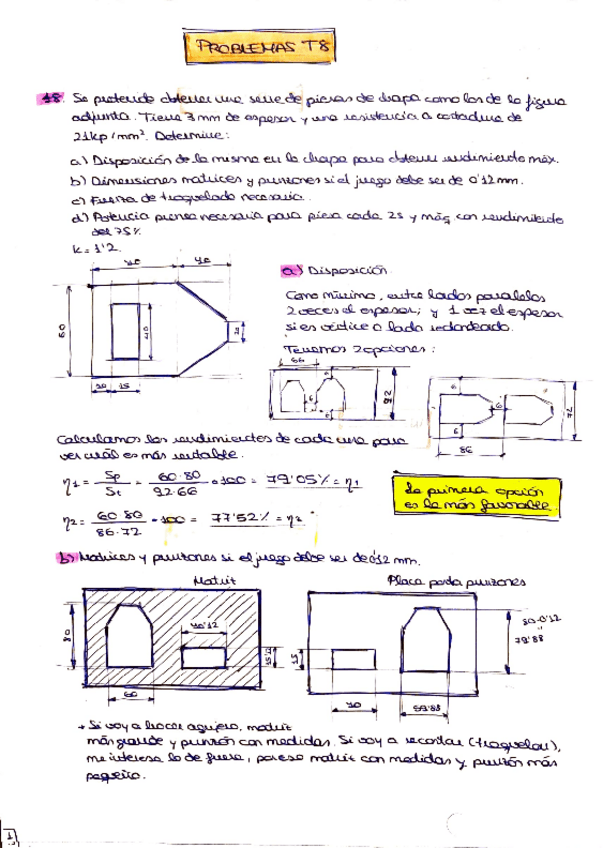 PROBLEMAS T8
18. Se pretende obtener una serie de piezas de chapa como las de la figura
adjunta. Tiene 3 mm de espesor y una resistencia a cortadura de
21kp/mm². Determine:
a) Disposición de la misma en la chapa para obtener rendimiento máx.
b) Dimensiones matrices y punzones si el juego debe ser de 0'12 mm.
c) Fuerza de troquelado necesaria.
d) Potencia prensa necesaria para pieza cada 2s y máq con rendimiento
del 75%
K = 1'2.
40
40
60
40
20
20
15
a) Disposición.
Como mínimo, entre lados paralelos
2 veces el espesor; y 1 vez el espesor
si es vértice o lado redondeado.
Tenemos 2 opciones:
66
6
92
6
6
6
72
86
Calculamos los rendimientos de cada una para
ver cuál es más rentable.
η1 = Sp/St = 60·80/92·66 · 100 = 79'05% = η1
η2 = 60·80/86·72 · 100 = 77'52% = η2
La primera opción
es la más favorable.
b) Matrices y punzones si el juego debe ser de 0'12 mm.
Matriz
Placa porta punzones
80
40'12
15'12
60
15
40
59'88
80-0'12
"
79'88
→ Si voy a hacer agujero, matriz
más grande y punzón con medidas. Si voy a recortar (troquelar),
me interesa lo de fuera, por eso matriz con medidas y punzón más
pequeño.
1